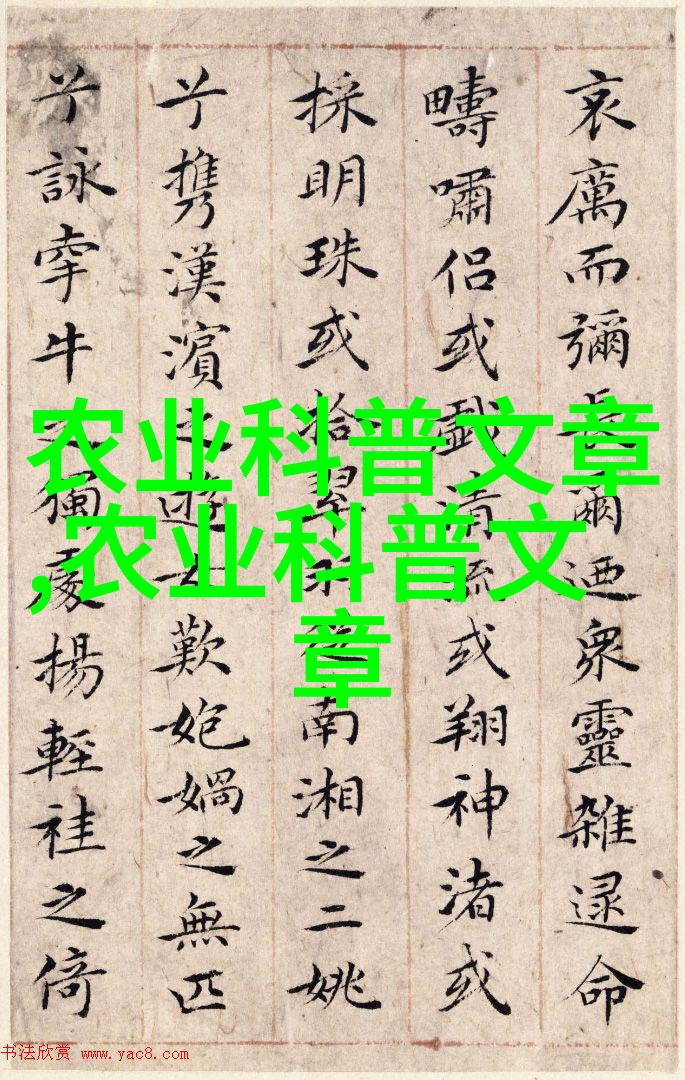 哀厲而彌長爾迺衆靈雜遝命
疇嘯侶或戲清流或翔神渚或
採明珠或拾翠羽從南湘之二姚
兮携漢濱之遊女歎媧之無匹
兮詠牽牛之獨處揚輕袿之倚
农业科普文章
,农业科普文
章
书法欣赏 www.yac8.com